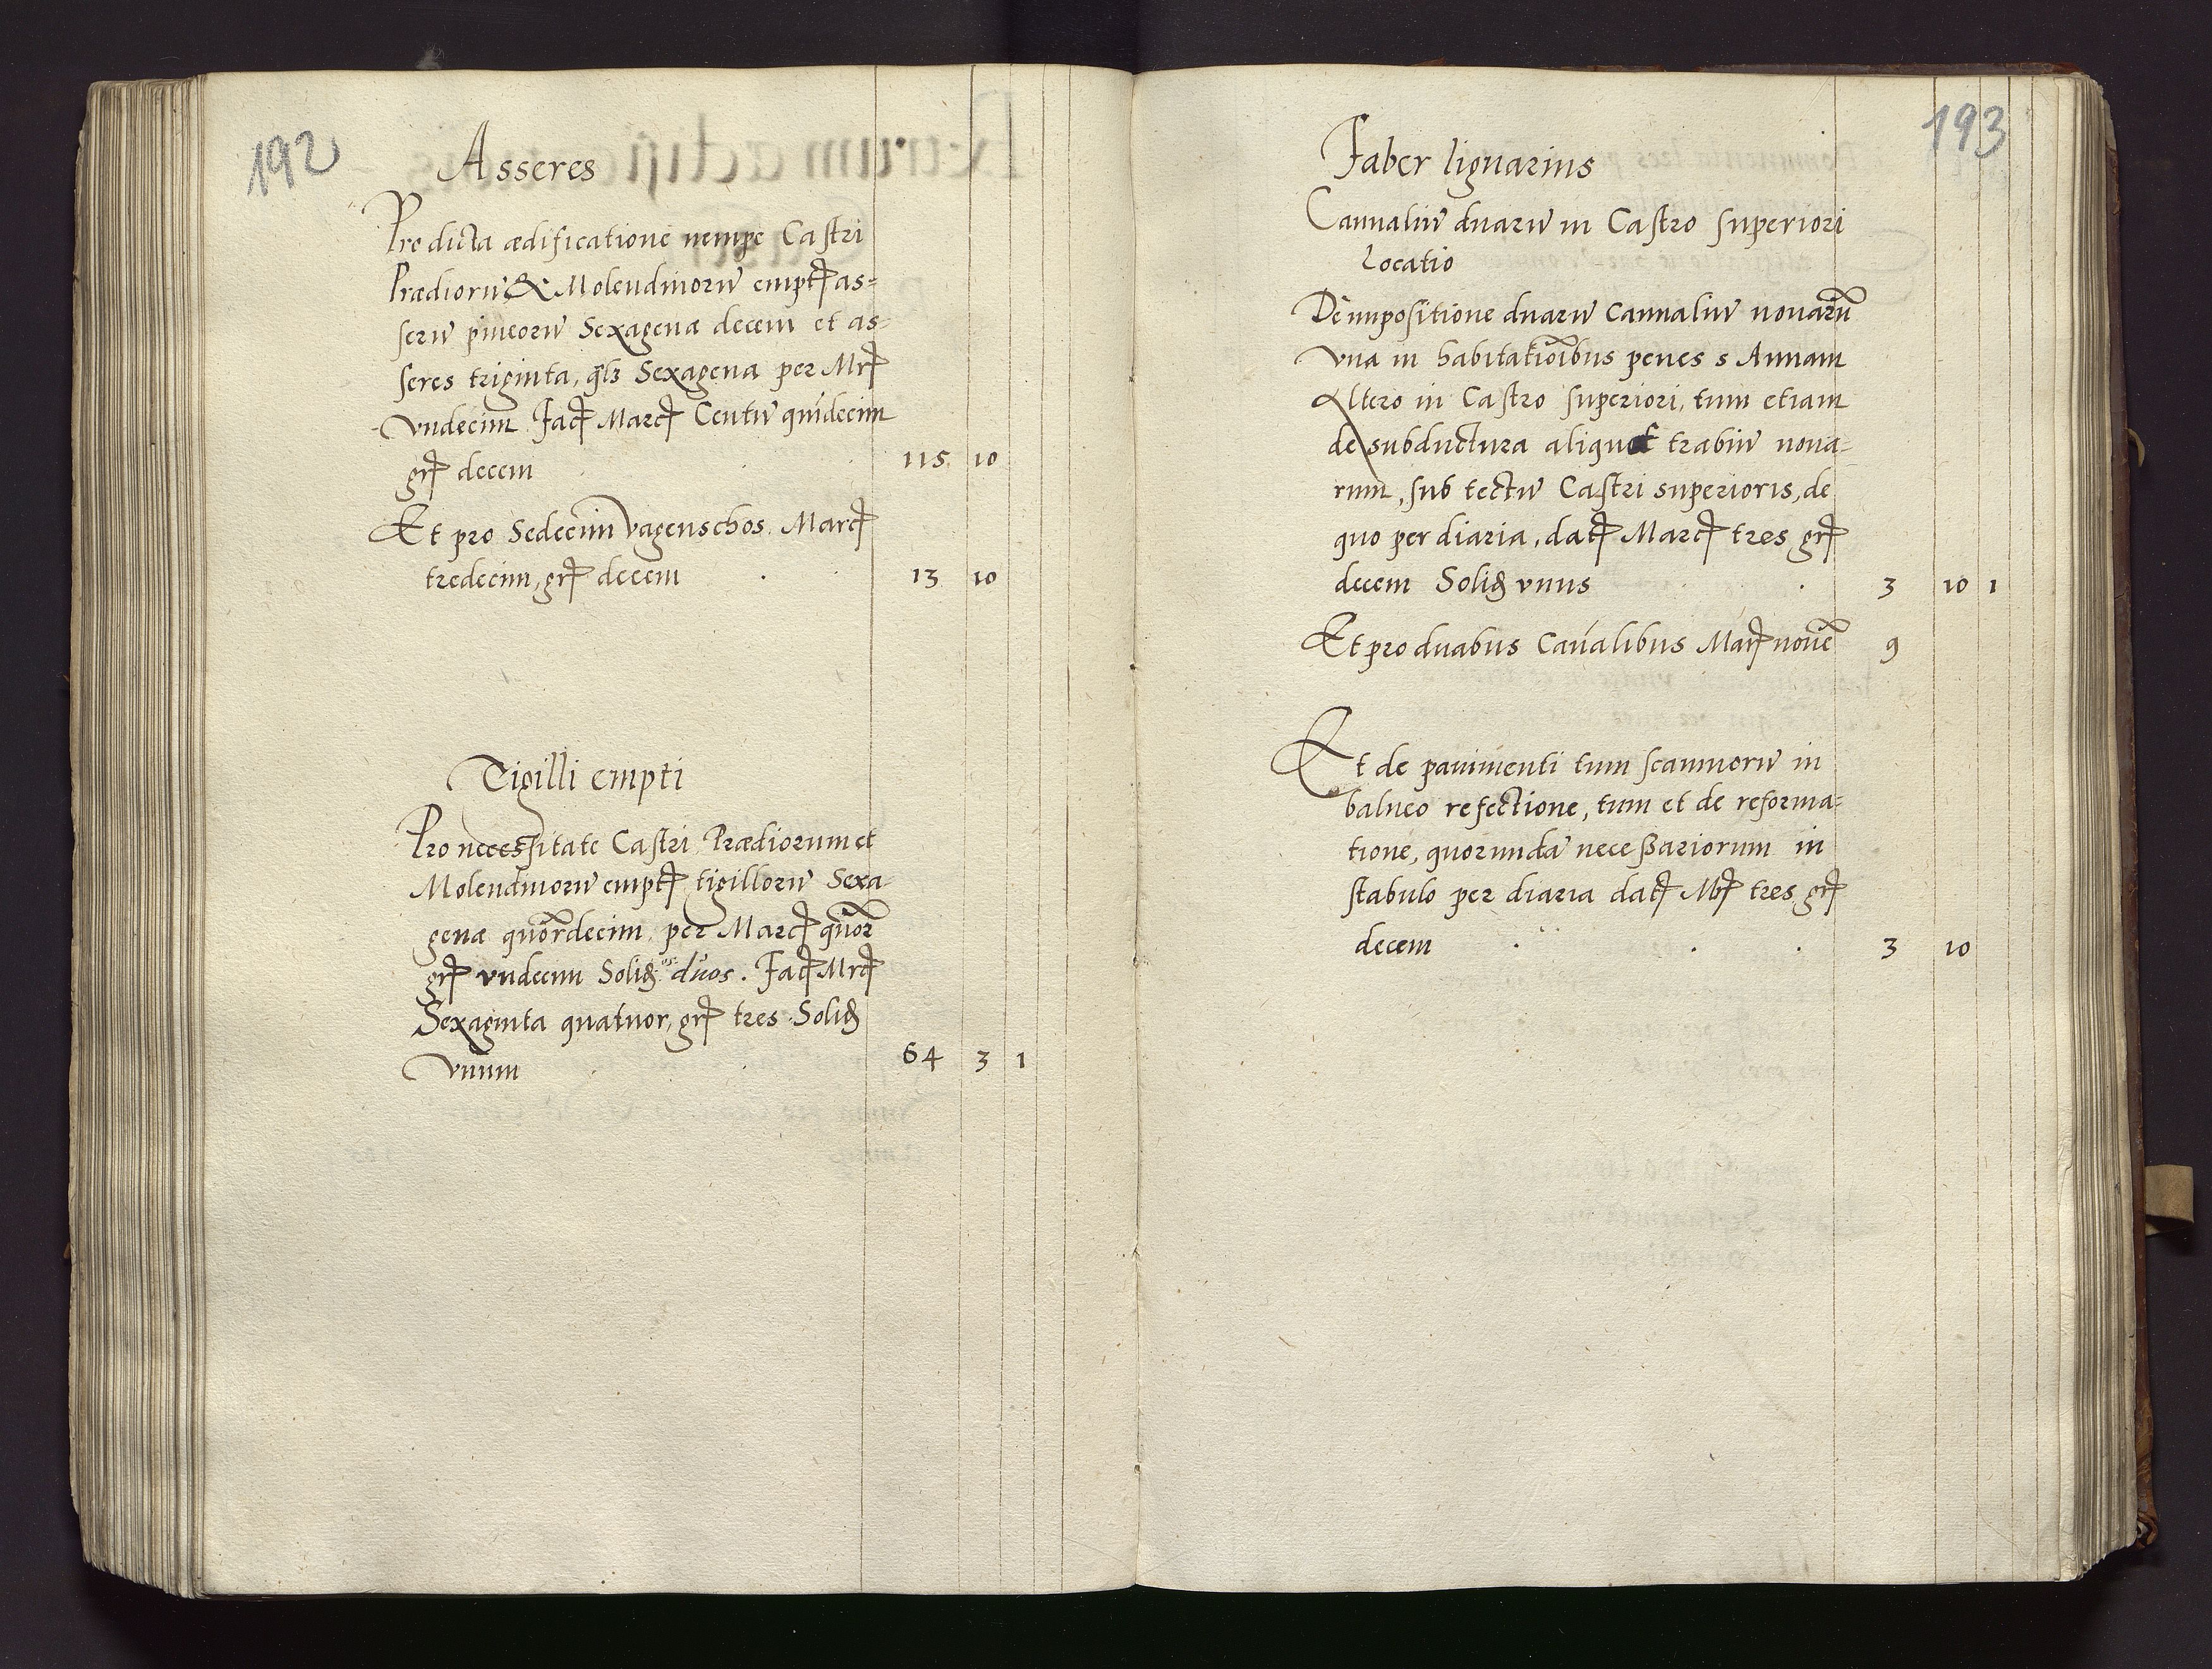 192
Asseres
Pro dicta ædificatione nempe Castri
Prædiorū & Molendinorū empt as-
serū pineorū Sexagenæ decem et as-
seres triginta, Sexagena per Mr
vndecim Fac Marc Centū quindecim
gr decem 115 10
Et pro Sedecim vagenschos Marc
tredecim, gr decem 13 10
Tigilli empti
Pro necessitate Castri Prædiorum et
Molendinorū empt tigillorū Sexa-
genæ quordecim, per Marc quor
gr vndecim Solid duos. Fac Mrc
Sexaginta quatuor, gr tres Solid
vnum 64 3 1
193
Faber lignarius
Cannaliū duarū in Castro superiori
Locatio
De impositione duarū Cannaliū nouarū
vna in habitatioībus penes s Annam
Altero in Castro superiori, tum etiam
de subductura aliquot trabiū noua-
rum, sub tectū Castri superioris, de
quo per diaria, dat Marc tres gr
decem Solid vnus 3 10 1
Et pro duabus Canalibus Mar nouē 9
Et de pauimenti tum scamnorū in
balneo refectione, tum et de reforma-
tione, quorundā necessariorum in
stabulo per diaria dat Mr tres gr
decem 3 10